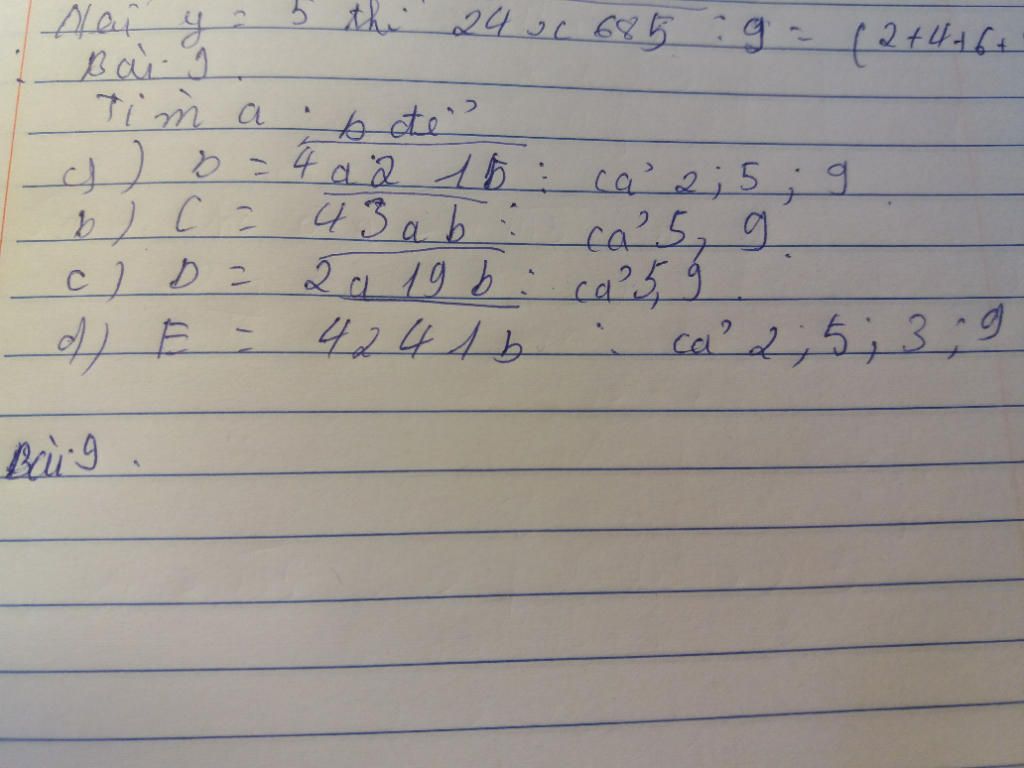 y = 5 thì 24 x 685 : 9 = (2+4+6+
Bài 9.
Tìm a; b để
a) D = 4a21b : cả 2; 5; 9
b) C = 43ab : cả 5, 9.
c) D = 2a19b : cả 5, 9.
d) E = 4241b : cả 2; 5; 3; 9
Bài 9.